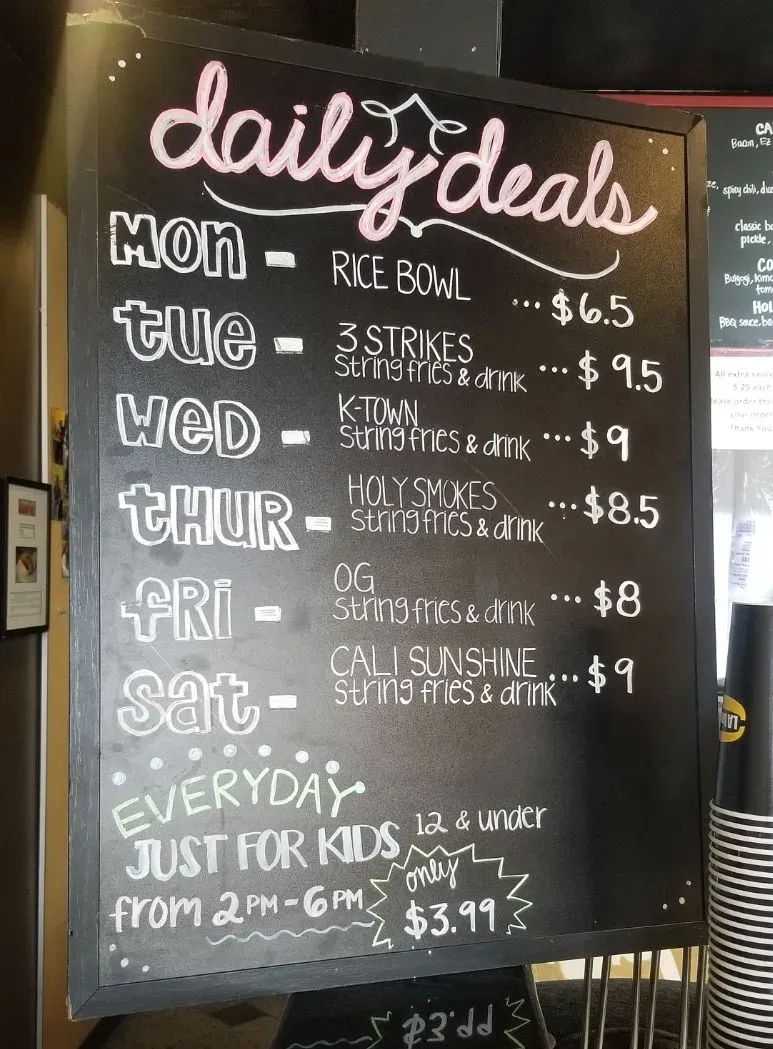 daily deals
MON - RICE BOWL ... $6.5
tue - 3 STRIKES
string fries & drink ... $9.5
WED - K-TOWN
string fries & drink ... $9
tHUR - HOLY SMOKES
string fries & drink ... $8.5
fRi - OG
string fries & drink ... $8
sat - CALI SUNSHINE
string fries & drink ... $9
EVERYDAY
JUST FOR KIDS 12 & under
from 2PM-6PM only
$3.99
CA
Bacon, Ez
spicy chili, dic
classic b
pickle,
CO
Bulgogi, Kimc
tom
HOL
BBQ sauce, be
All extra sauc
your order
Thank You